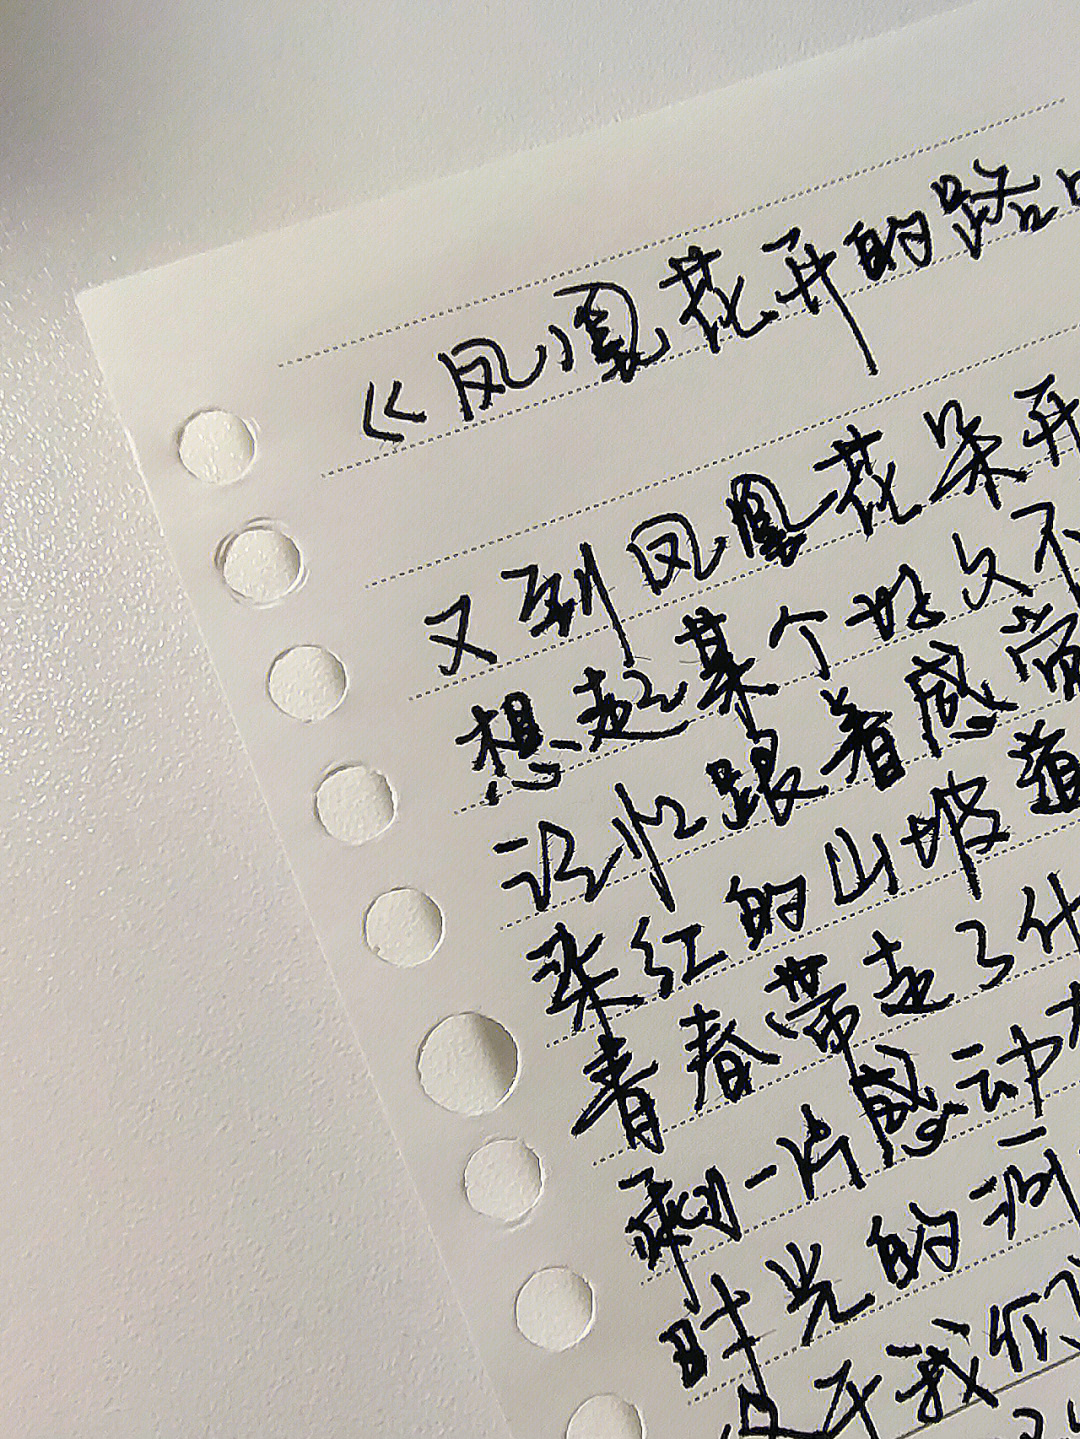 《凤凰花开的路口
又到凤凰花朵开
想起某个好久不
记忆跟着感觉
染红的山坡道
青春带走了什
剩一片感动
时光的河
我们